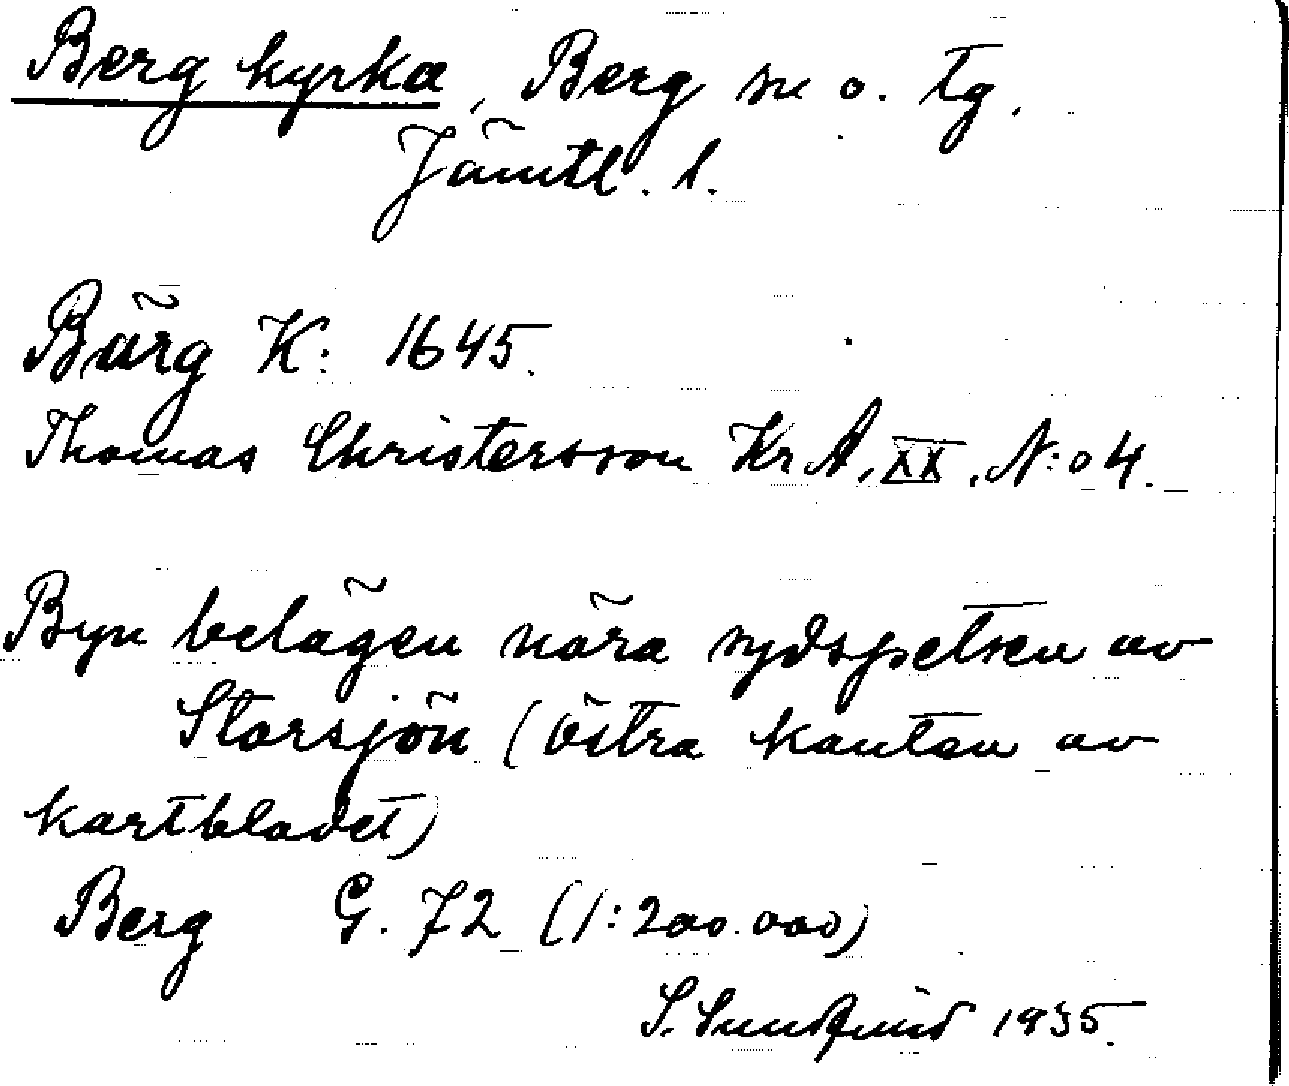 Berg kyrka, Berg sn o. tg.
Jämtl. l.
Bärg K: 1645.
Thomas Christersson Kr A. XX. N:o 4.
Byn belägen nära sydspetsen av
Storsjön (östra kanten av
kartbladet)
Berg G. 72 (1:200.000)
S. Sundqvist 1935.